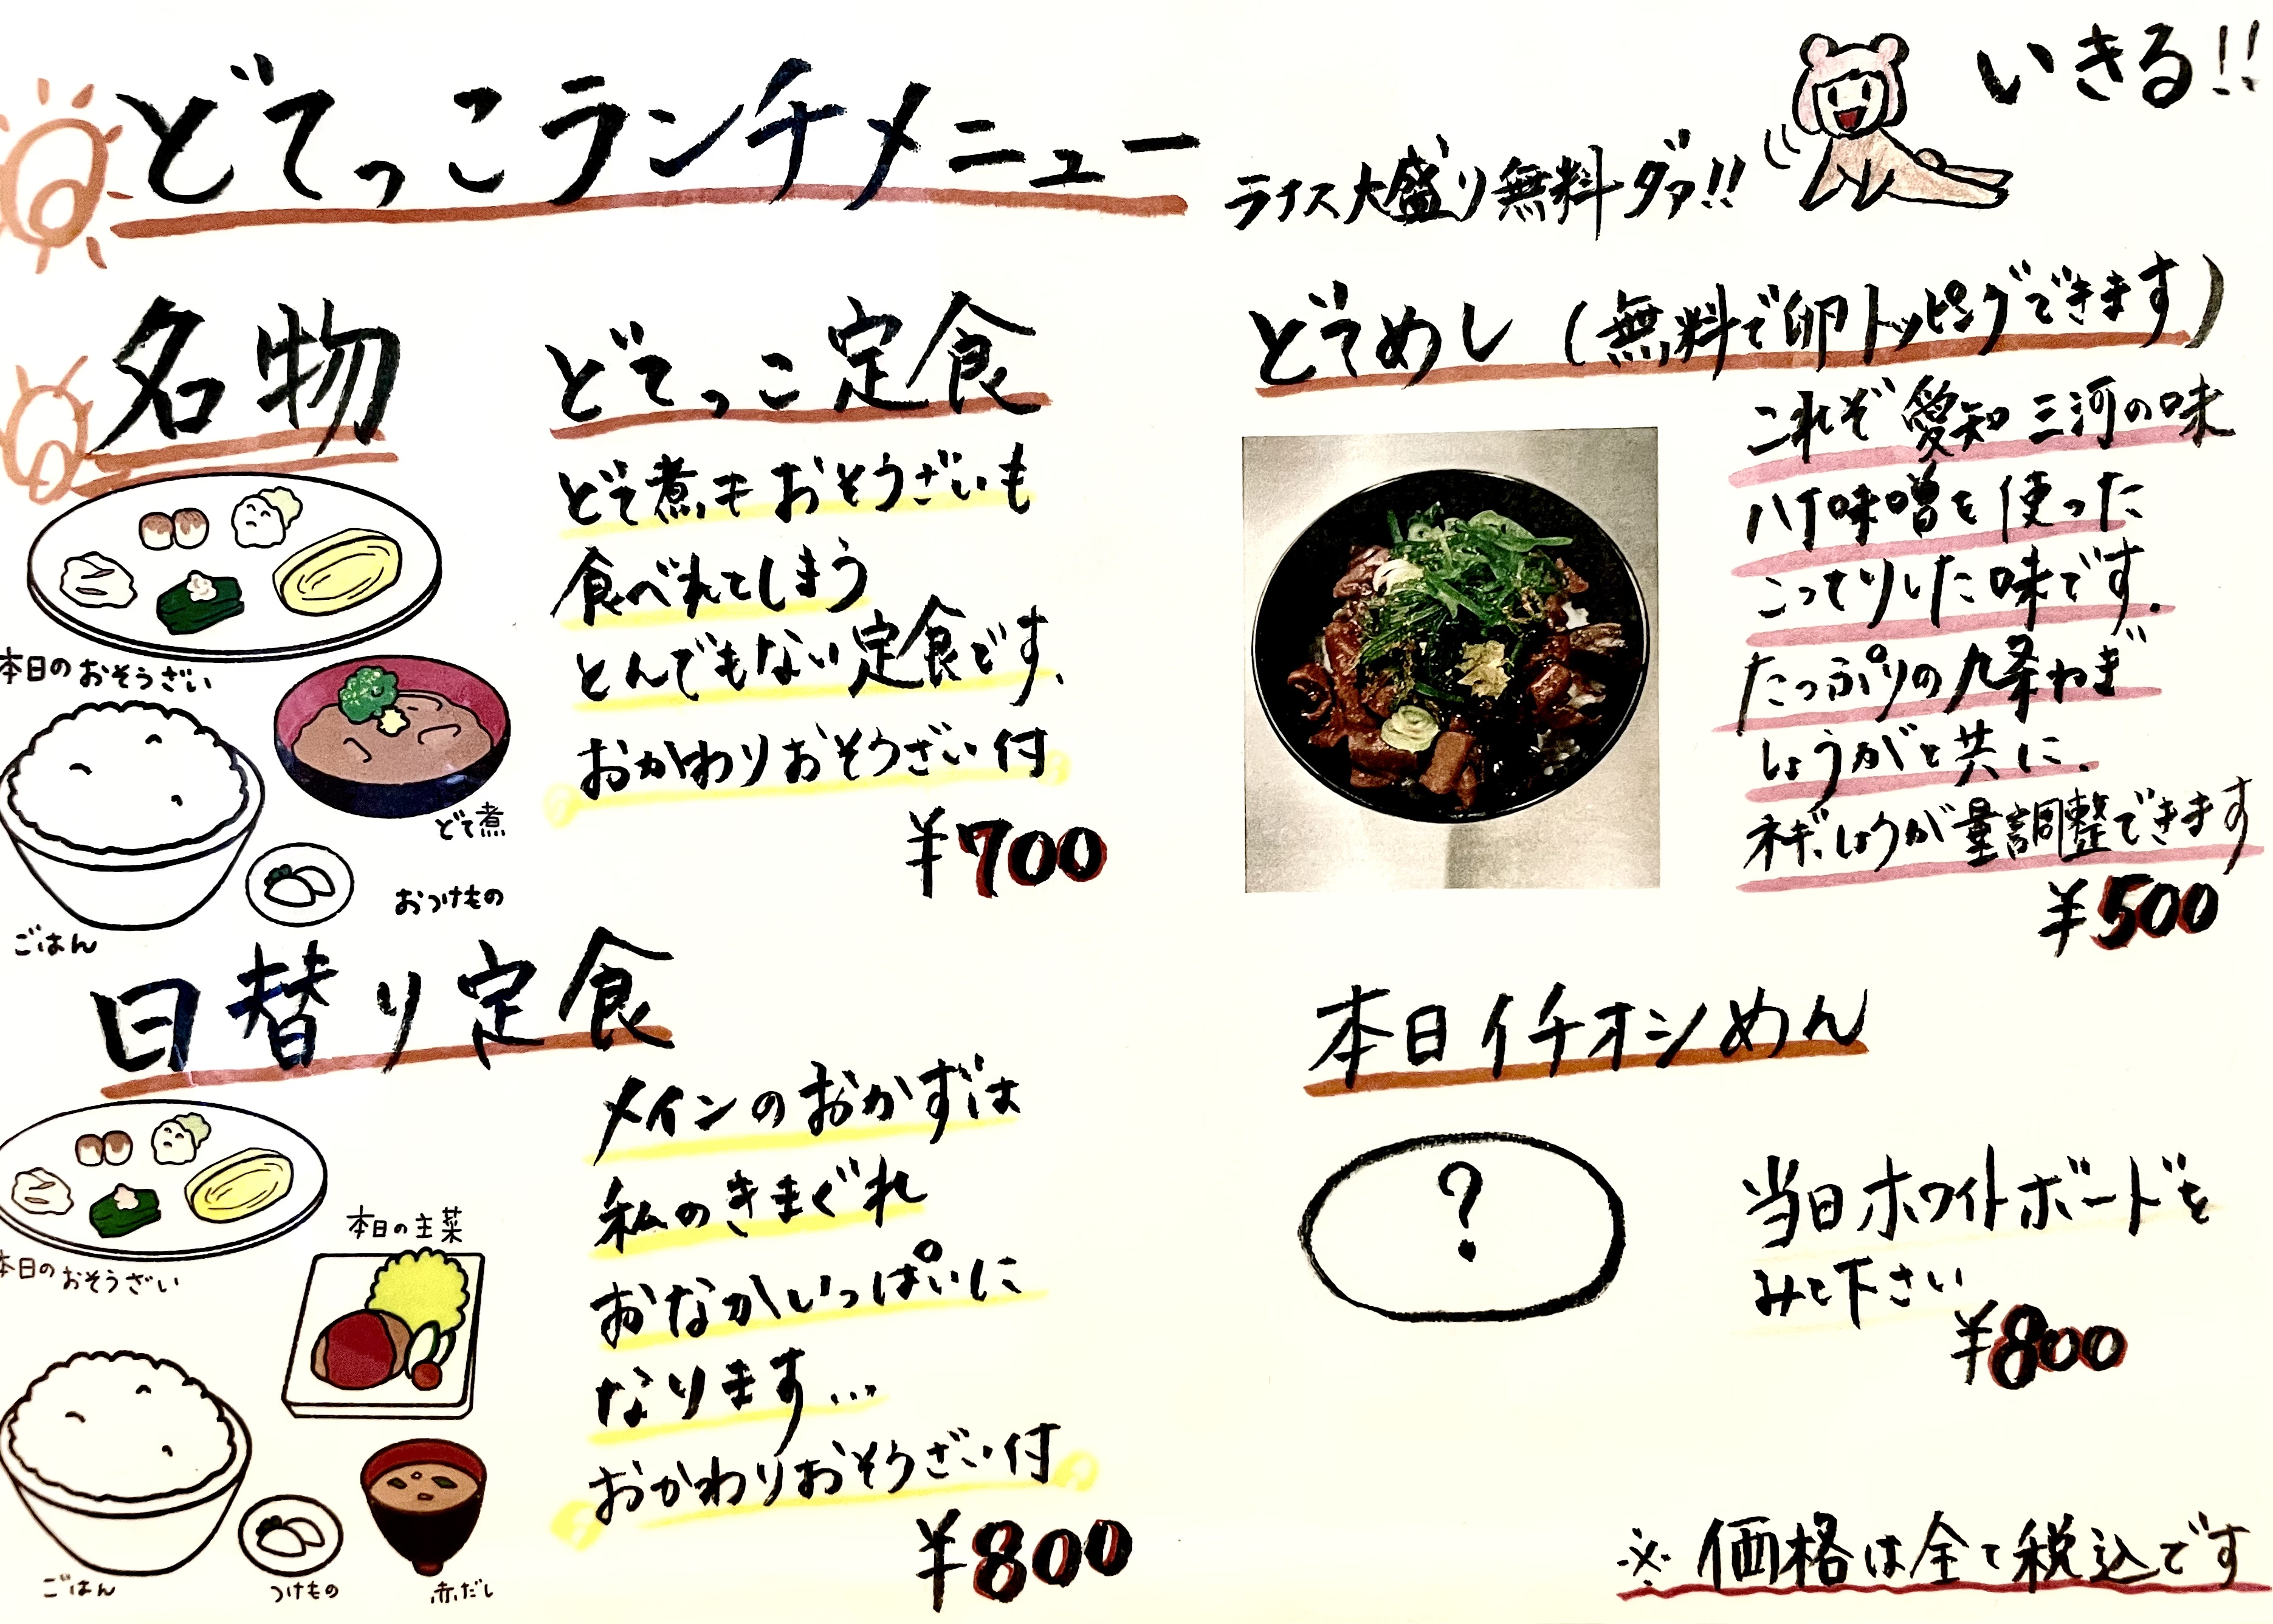 どてっこランチメニュー
ライス大盛り無料ダァ!!
いきる!!
名物
どてっこ定食
どて煮もおそうざいも
食べれてしまう
とんでもない定食です、
おかわりおそうざい付
¥700
本日のおそうざい
どて煮
おつけもの
ごはん
日替り定食
メインのおかずは
私のきまぐれ
おなかいっぱいに
なります…
おかわりおそうざい付
¥800
本日のおそうざい
本日の主菜
ごはん
つけもの
赤だし
どてめし(無料で卵トッピングできます)
これぞ愛知三河の味
八丁味噌を使った
こってりした味です.
たっぷりの九条ねぎ
しょうがと共に、
ネギ、しょうが量調整できます
¥500
本日イチオシめん
?
当日ホワイトボードを
みて下さい
¥800
※価格は全て税込です